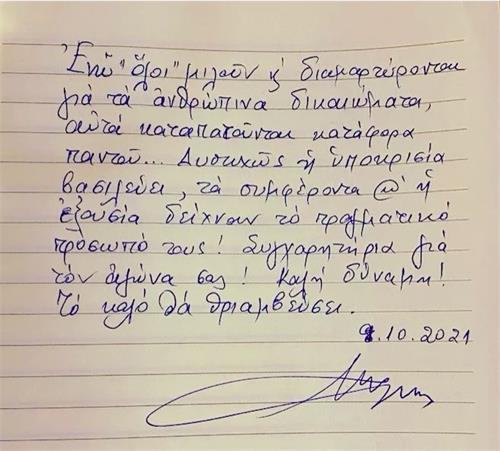 Ἐνῶ "ὅλοι" μιλοῦν κ' διαμαρτύρονται
γιά τά ἀνθρώπινα δικαιώματα,
αὐτά καταπατοῦνται κατάφορα
παντοῦ... Δυστυχῶς ἡ ὑποκρισία
βασιλεύει, τά συμφέροντα ἡ
ἐξουσία δείχνουν τό πραγματικό
πρόσωπό τους! Συγχαρητήρια γιά
τόν ἀγώνα σας! Καλή δύναμη!
Τό καλό θά θριαμβεύσει.
.10.2021